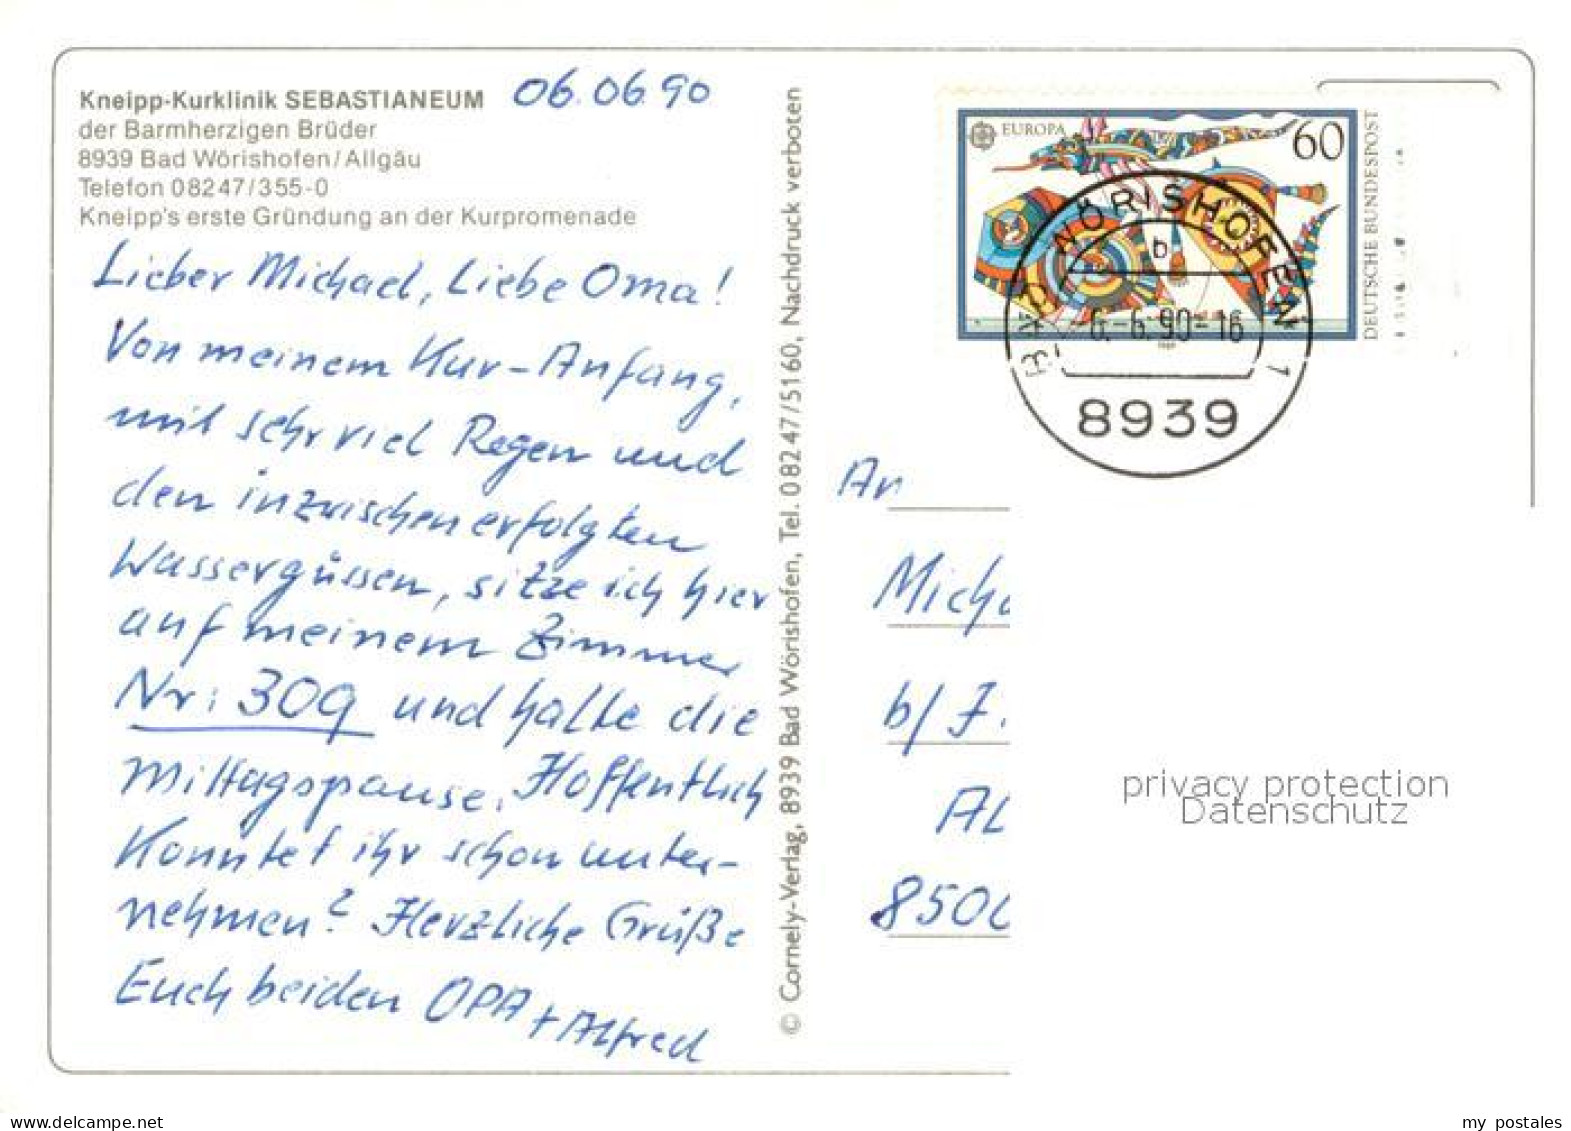 Kneipp-Kurklinik SEBASTIANEUM
06.06.90
der Barmherzigen Brüder
8939 Bad Wörishofen/Allgäu
Telefon 08247/355-0
Kneipp's erste Gründung an der Kurpromenade
Lieber Michael, Liebe Oma!
Von meinem Kur-Anfang,
mit sehr viel Regen und
den inzwischen erfolgten
Wassergüssen, sitze ich hier
auf meinem Zimmer
Nr: 309 und halte die
Mittagspause. Hoffentlich
Konntet ihr schon unter-
nehmen? Herzliche Grüße
Euch beiden OPA + Alfred
© Cornely-Verlag, 8939 Bad Wörishofen, Tel. 08247/5160, Nachdruck verboten
EUROPA
60
DEUTSCHE BUNDESPOST
WÖRISHOFEN 1
b
-6.-6.90-16
8939
An
Micha
b/ F.
AL
850
privacy protection
Datenschutz
my postales
www.delcampe.net